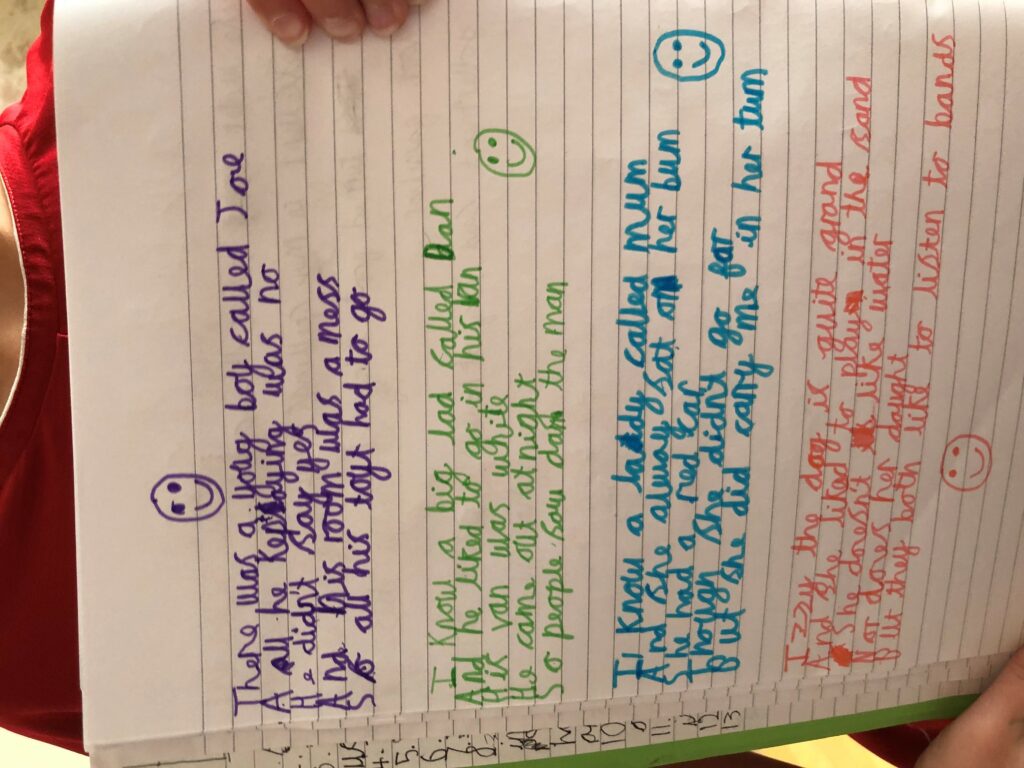 There was a young boy called Joe
And all he kept saying was no
He didn't say yes
And his room was a mess
So all his toys had to go
I know a big lad called Dan
And he liked to go in his van
His van was white
He came out at night
So people saw dan the man
I know a laddy called mum
And she always sat on her bum
She had a red car
Though she didn't go far
But she did carry me in her tum
Izzy the dog is quite grand
And she liked to play in the sand
She doesn't like water
Nor does her daught
But they both like to listen to bands
5.
6.
10
11.
13